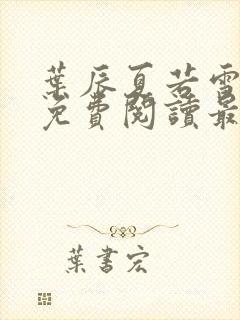 葉辰夏若雪
免費閱讀最
葉書宏